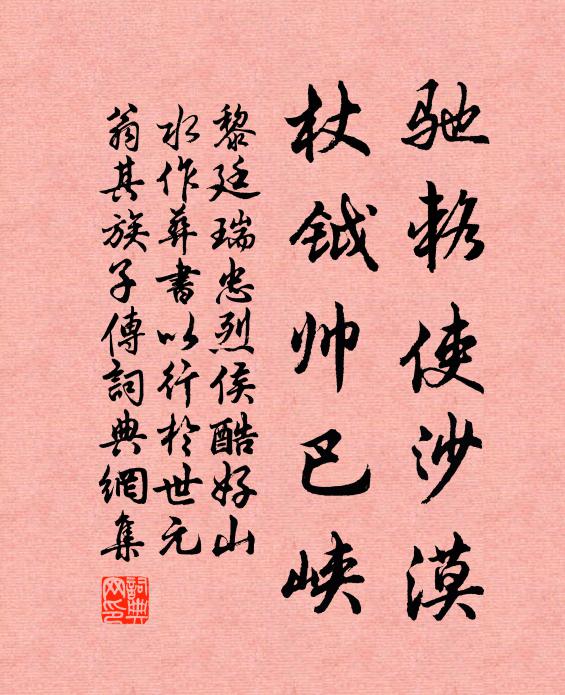 驰轺使沙漠
杖钺帅巴峡
黎廷瑞忠烈侯酷好山
水作葬書以行於世元
翁其族子傳詞典網集
詞典
网印